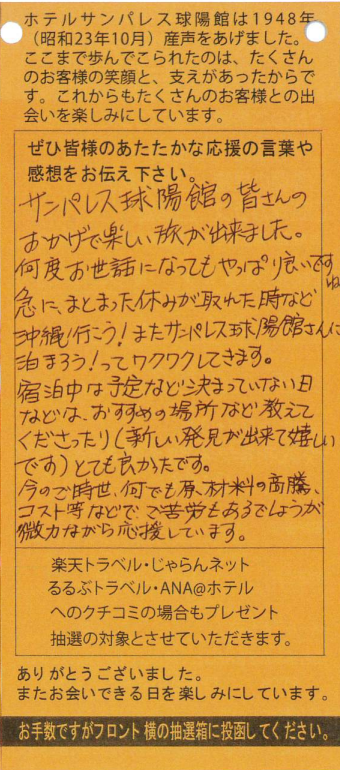 ホテルサンパレス球陽館は1948年
（昭和23年10月）産声をあげました。
ここまで歩んでこられたのは、たくさん
のお客様の笑顔と、支えがあったからで
す。これからもたくさんのお客様との出
会いを楽しみにしています。
ぜひ皆様のあたたかな応援の言葉や
感想をお伝え下さい。
サンパレス球陽館の皆さんの
おかげで楽しい旅が出来ました。
何度お世話になってもやっぱり良いですね
急に、まとまった休みが取れた時など
沖縄行こう！またサンパレス球陽館さんに
泊まろう！ってワクワクしてきます。
宿泊中は予定など決まっていない日
などは、おすすめの場所など教えて
くださったり（新しい発見が出来て嬉しい
です）とても良かったです。
今のご時世、何でも原材料の高騰、
コスト等などでご苦労もあるでしょうが
微力ながら応援しています。
楽天トラベル・じゃらんネット
るるぶトラベル・ANA@ホテル
へのクチコミの場合もプレゼント
抽選の対象とさせていただきます。
ありがとうございました。
またお会いできる日を楽しみにしています。
お手数ですがフロント横の抽選箱に投函してください。